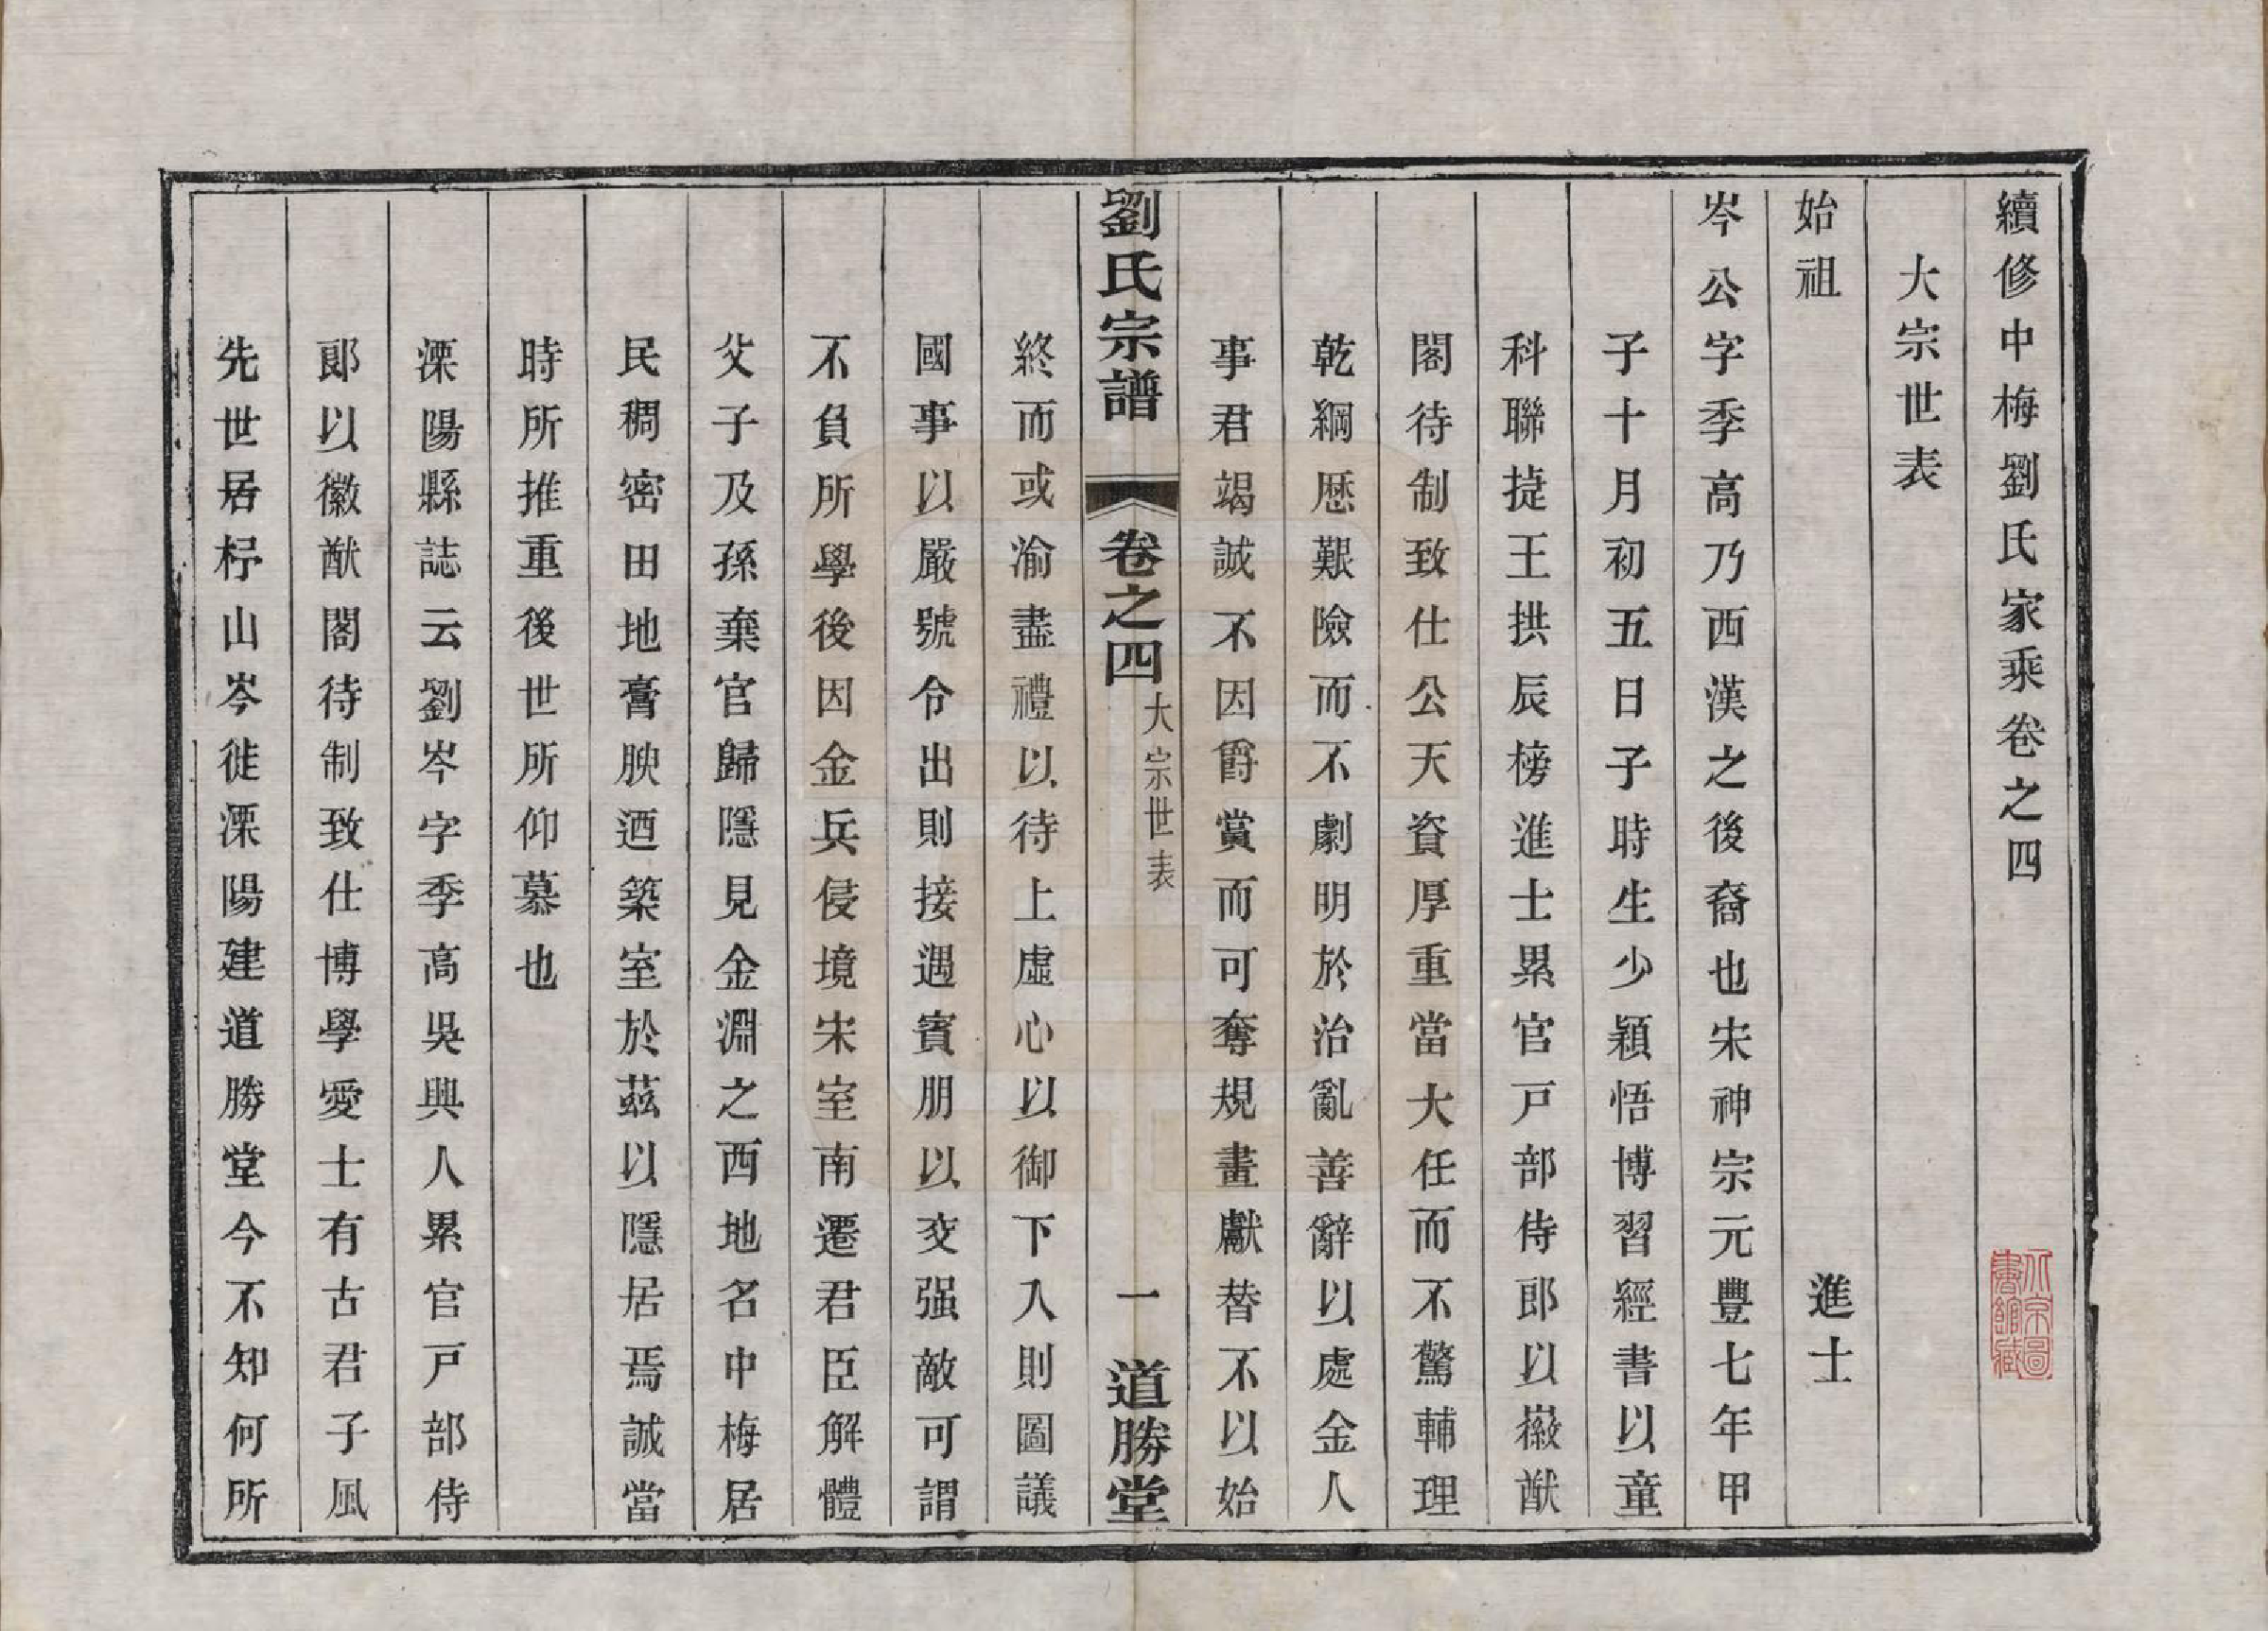 續修中梅劉氏家乘卷之四
大宗世表
始祖　進士
岑公字季高乃西漢之後裔也宋神宗元豐七年甲
子十月初五日子時生少穎悟博習經書以童
科聯捷王拱辰榜進士累官戸部侍郎以徽猷
閣待制致仕公天資厚重當大任而不驚輔理
乾綱歷艱險而不劇明於治亂善辭以處金人
事君竭誠不因爵賞而可奪規畫獻替不以始
劉氏宗譜　卷之四　大宗世表　一　道勝堂
終而或渝盡禮以待上虛心以御下入則圖議
國事以嚴號令出則接遇賓朋以交强敵可謂
不負所學後因金兵侵境宋室南遷君臣解體
父子及孫棄官歸隱見金淵之西地名中梅居
民稠密田地膏腴迺築室於茲以隱居焉誠當
時所推重後世所仰慕也
溧陽縣誌云劉岑字季高吳興人累官戸部侍
郎以徽猷閣待制致仕博學愛士有古君子風
先世居杼山岑徙溧陽建道勝堂今不知何所